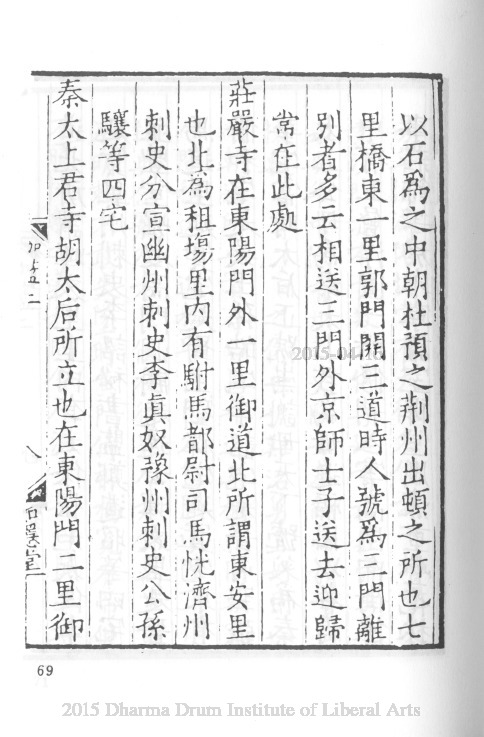 以石爲之中朝杜預之荆州出頓之所也七
里橋東一里郭門開三道時人號爲三門離
別者多云相送三門外京師士子送去迎歸
常在此處
莊嚴寺在東陽門外一里御道北所謂東安里
也北爲租塲里內有駙馬都尉司馬恱濟州
刺史分宣幽州刺史李眞奴豫州刺史公孫
驤等四宅
秦太上君寺胡太后所立也在東陽門二里御
69
2015-04-16
2015 Dharma Drum Institute of Liberal Arts